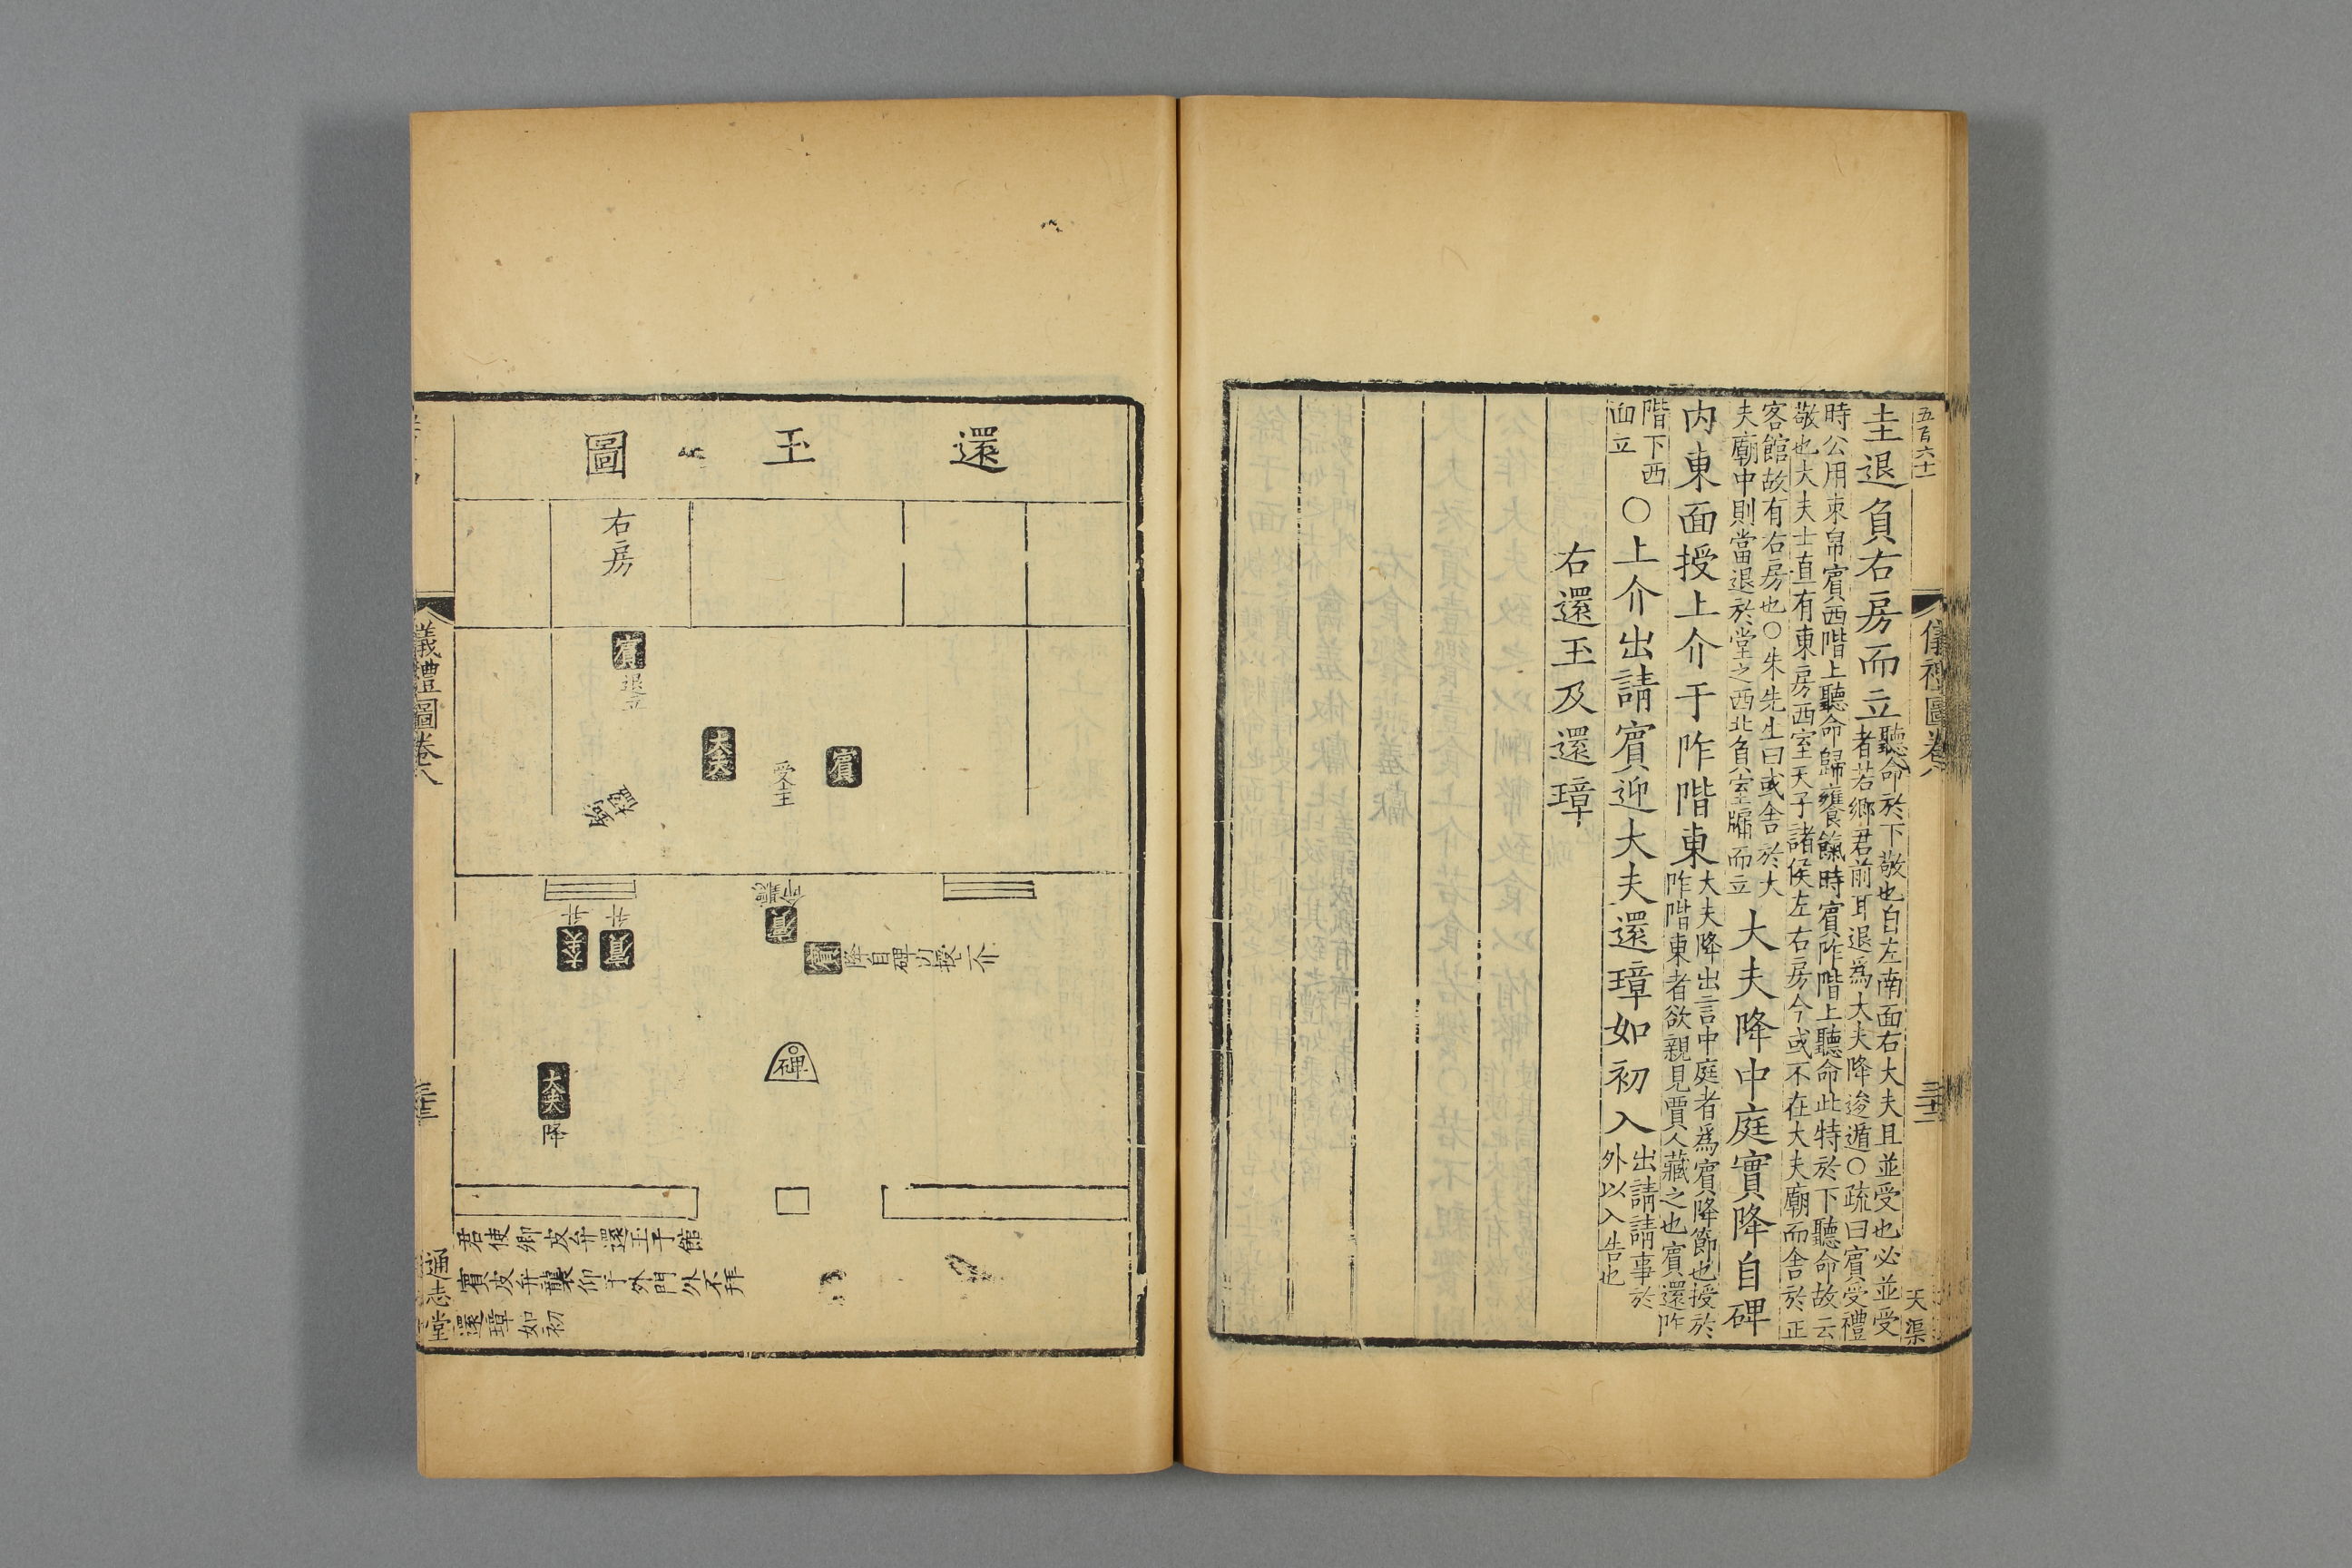 五百六十一
儀禮圖卷八
三十二
天渠
圭退負右房而立聽命於下敬也自左南面右大夫且並受也必並受
者若鄉君前耳退為大夫降逡遁○疏曰賓受禮
時公用束帛賓西階上聽命歸饔餼時賓阼階上聽命此特於下聽命故云
敬也大夫士直有東房西室天子諸侯左右房今或不在大夫廟而舍於正
客館故有右房也○朱先生曰或舍於大
夫廟中則當退於堂之西北負室牖而立
大夫降中庭賓降自碑
内東面授上介于阼階東大夫降出言中庭者為賓降節也授於
阼階東者欲親見賈人藏之也賓還阼
階下西
面立
○上介出請賓迎大夫還璋如初入出請請事於
外以入告也
右還玉及還璋
還玉圖
右房
賓退立
大夫
受玉
賓
楹
聽命
賓
升
賓
升
大夫
賓降自碑内授上介
碑
大夫降
君使卿皮弁還玉于館
賓皮弁襲迎于外門外不拜
還璋如初
儀禮圖卷八
三十三
通志堂